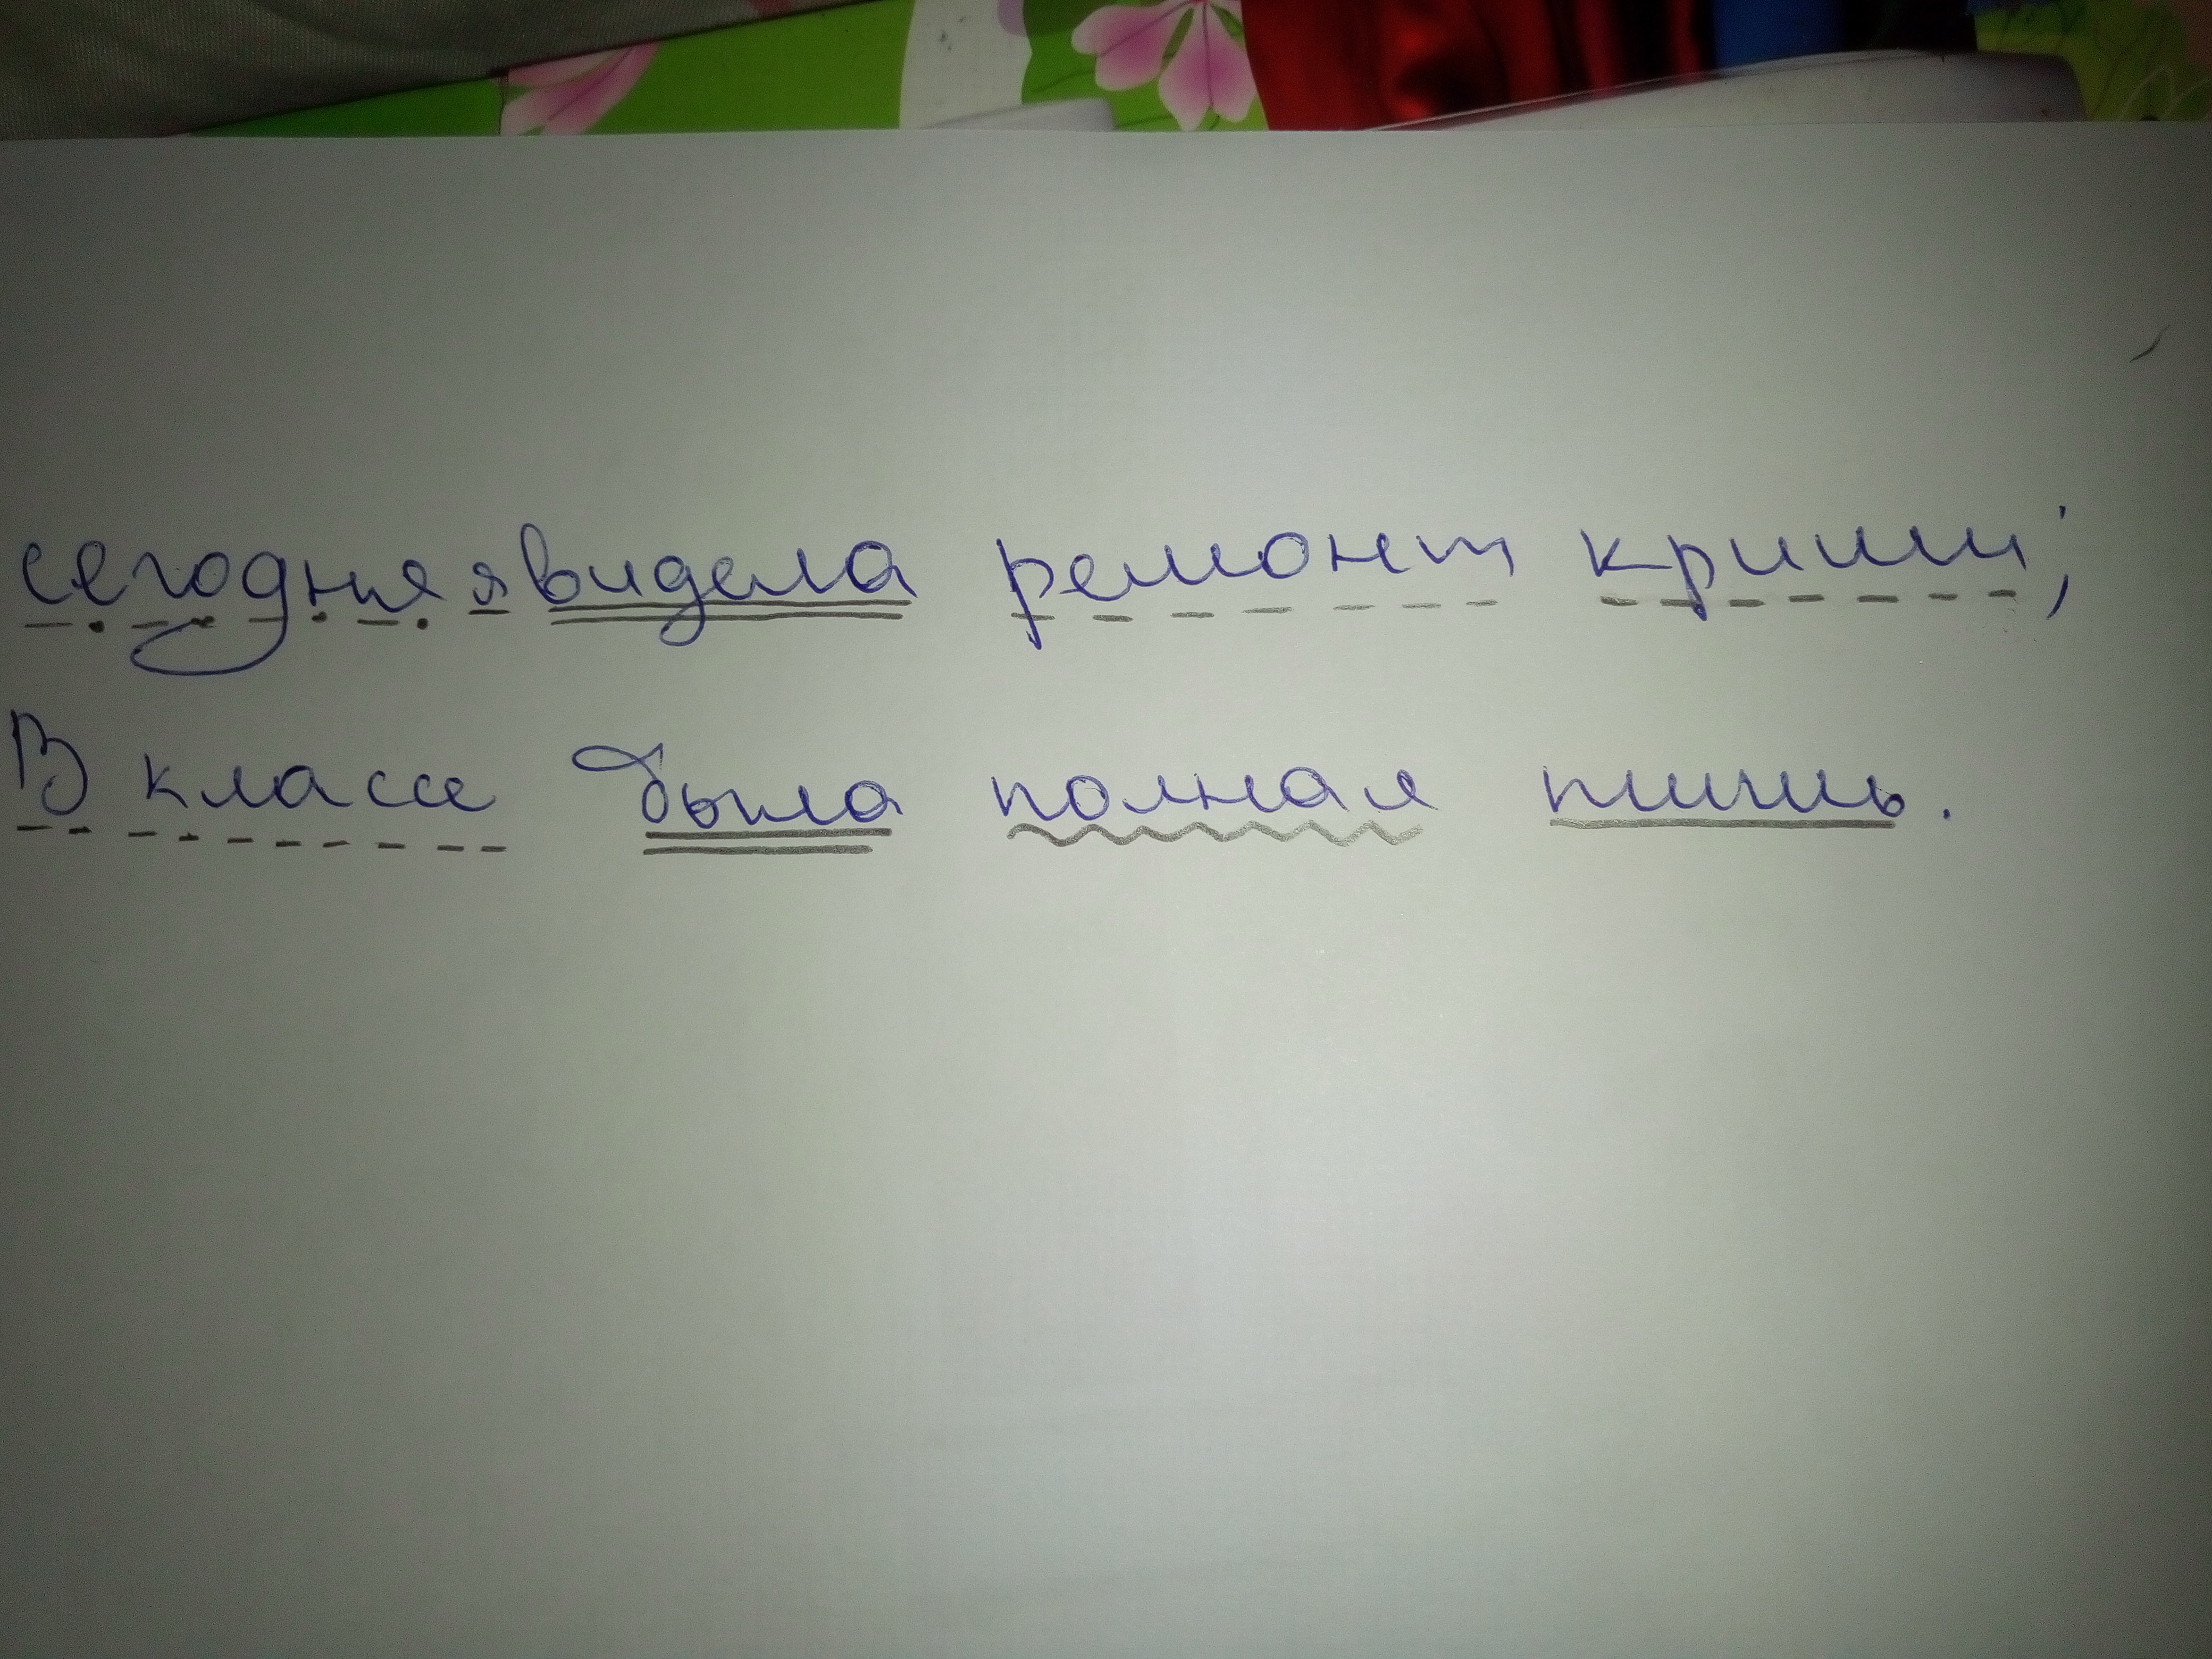 сегодня я видела ремонт криши;
В классе была полная тишь.